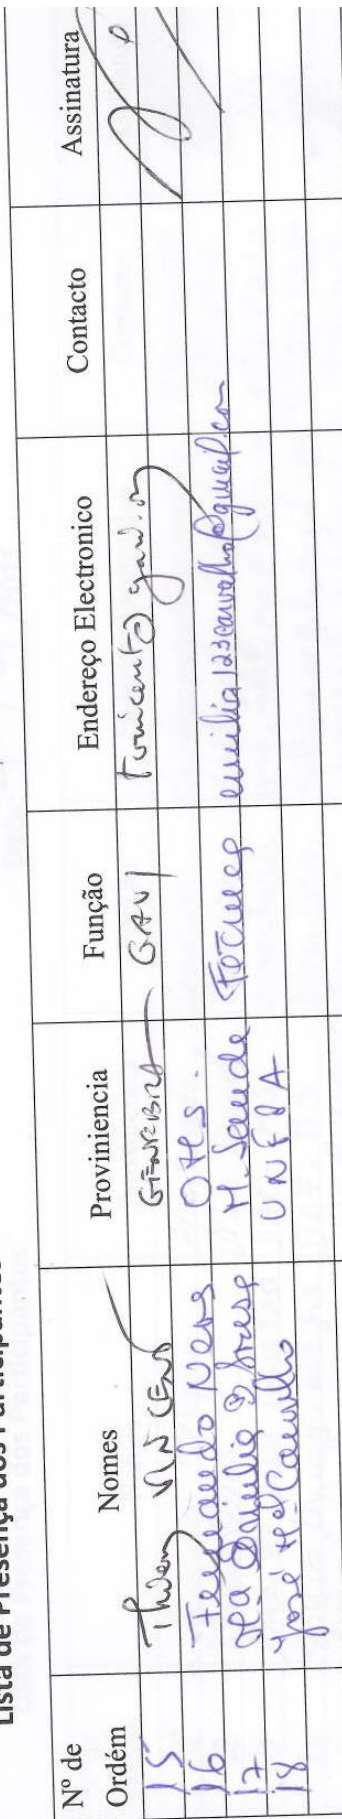 Lista de Presença dos Participantes
Nº de Ordém | Nomes | Proviniencia | Função | Endereço Electronico | Contacto | Assinatura
15 | Thierry VINCENT | GENEBRA | GAVI | tvincent@gavi.org
16 | Fernando Neves | OMS.
17 | Mª Emilia | M. Saude | emilia123carvalho@gmail.com
18 | José Mel Carvalho | UNFPA